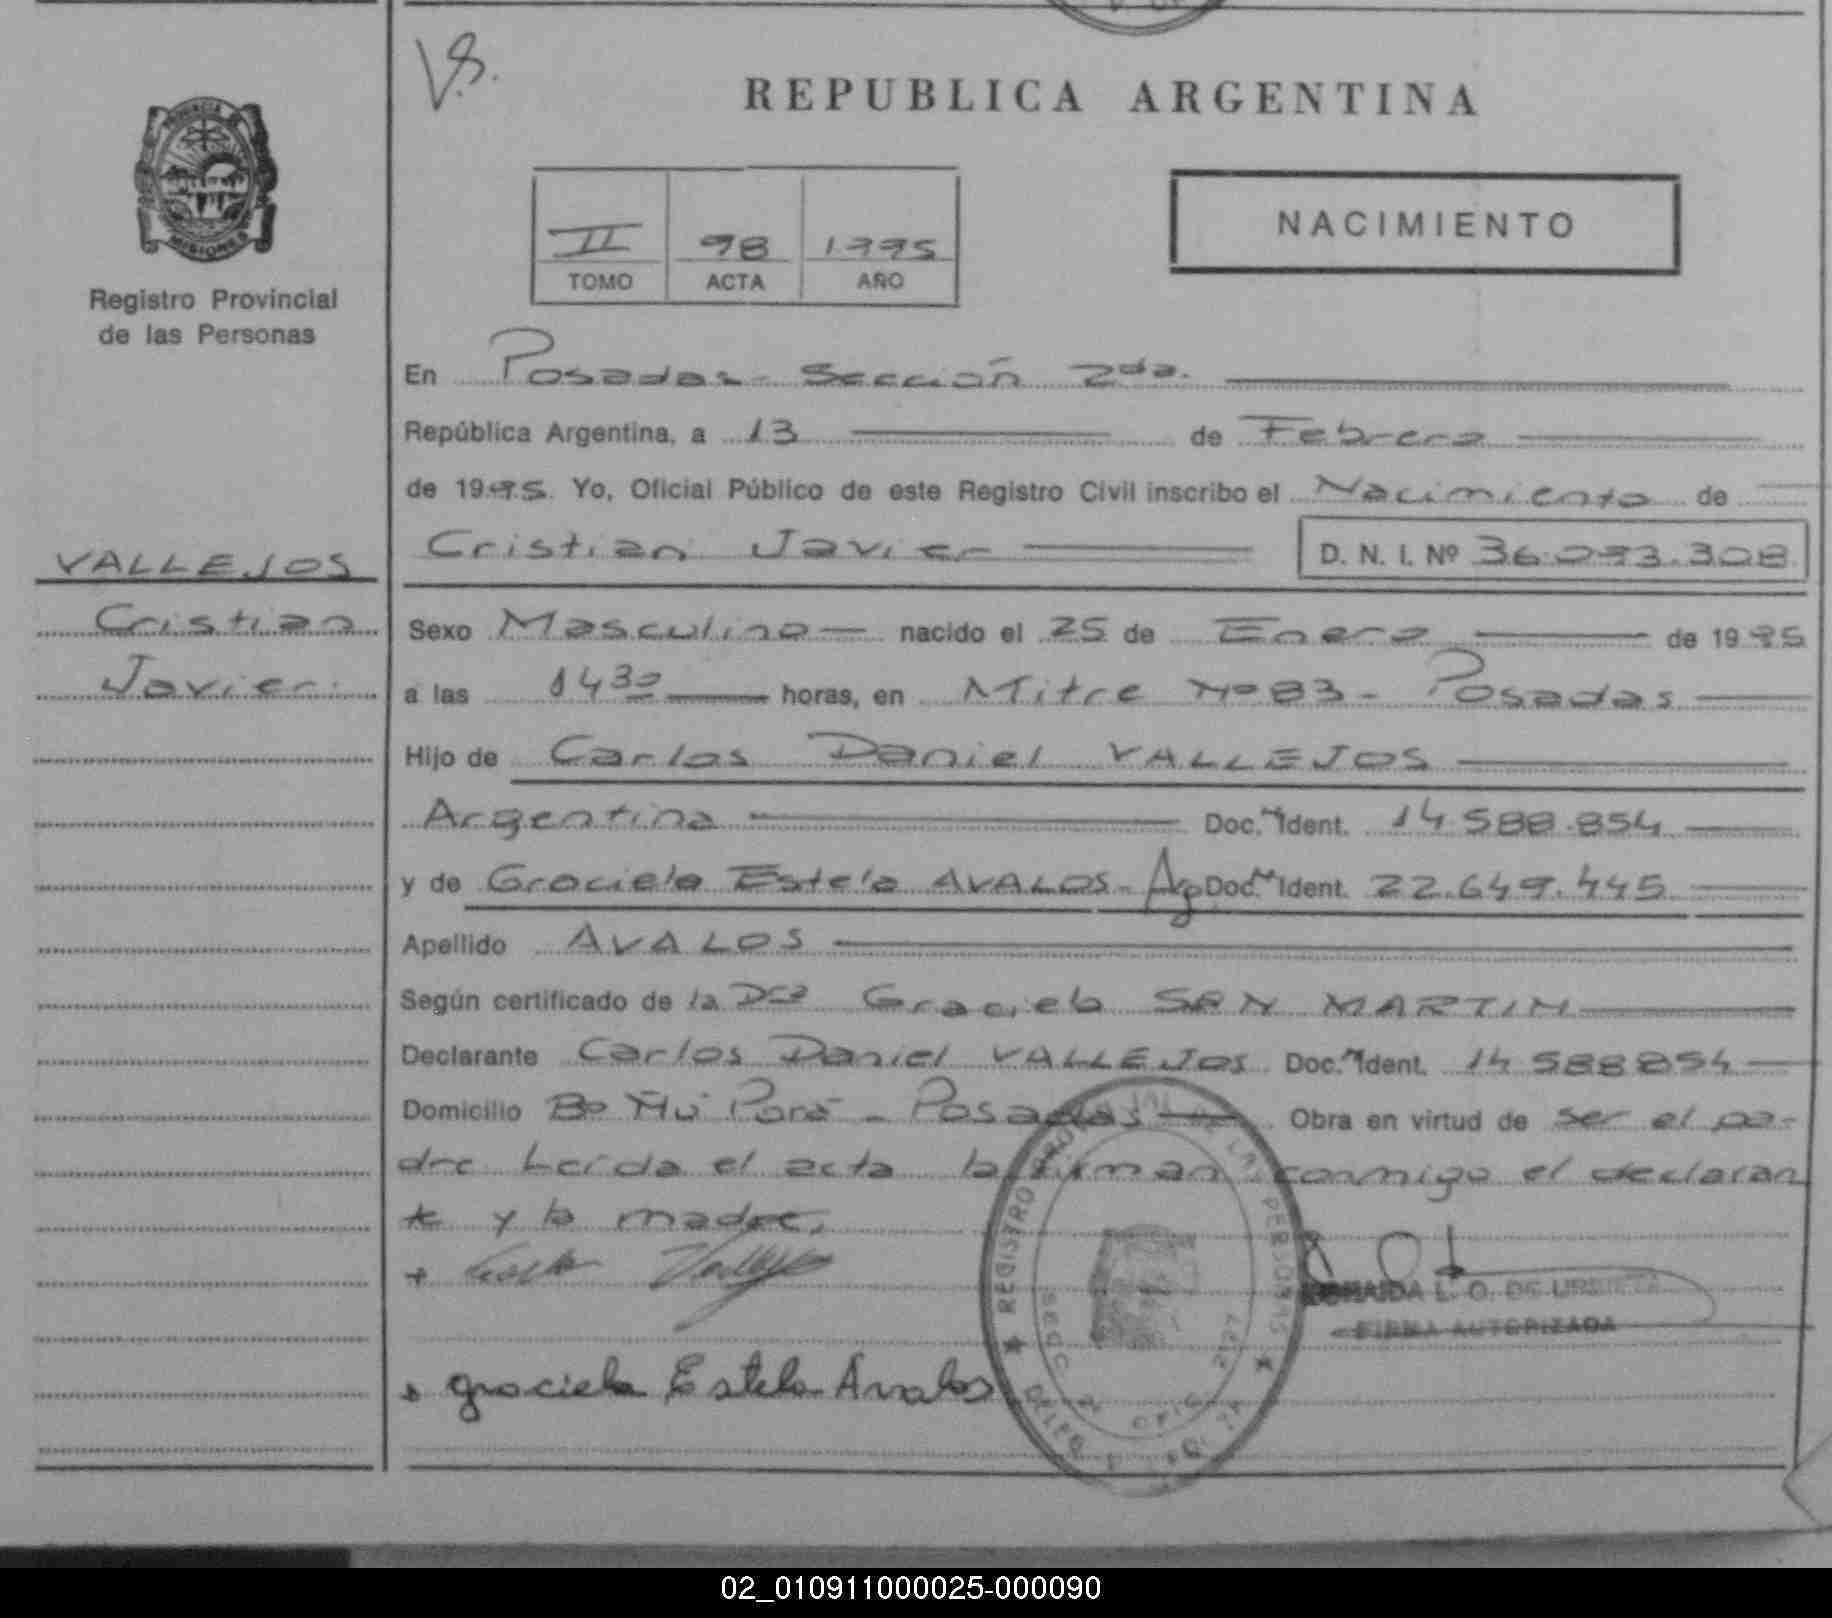 V.S.
REPUBLICA ARGENTINA
PROVINCIA DE
MISIONES
Registro Provincial
de las Personas
II 98 1995
TOMO ACTA AÑO
NACIMIENTO
En Posadas - Sección 2da.
República Argentina, a 13 de Febrero
de 1995. Yo, Oficial Público de este Registro Civil inscribo el Nacimiento de
Cristian Javier D. N. I. Nº 36.093.308
VALLEJOS
Cristian
Javier.
Sexo Masculino nacido el 25 de Enero de 1995
a las 14 30 horas, en Mitre Nº 83 - Posadas
Hijo de Carlos Daniel VALLEJOS
Argentina Doc. Ident. 14.588.854
y de Graciela Estela AVALOS - Arg Doc. Ident. 22.649.445
Apellido AVALOS
Según certificado de la Dra Graciela SAN MARTIN
Declarante Carlos Daniel VALLEJOS Doc. Ident. 14.588.854
Domicilio Bº Ñu Porá - Posadas Obra en virtud de ser el pa-
dre Leida el acta la firman conmigo el declaran
te y la madre.
L. O. DE
FIRMA AUTORIZADA
graciela Estela Avalos
REGISTRO PROVINCIAL DE LAS PERSONAS
02_010911000025-000090